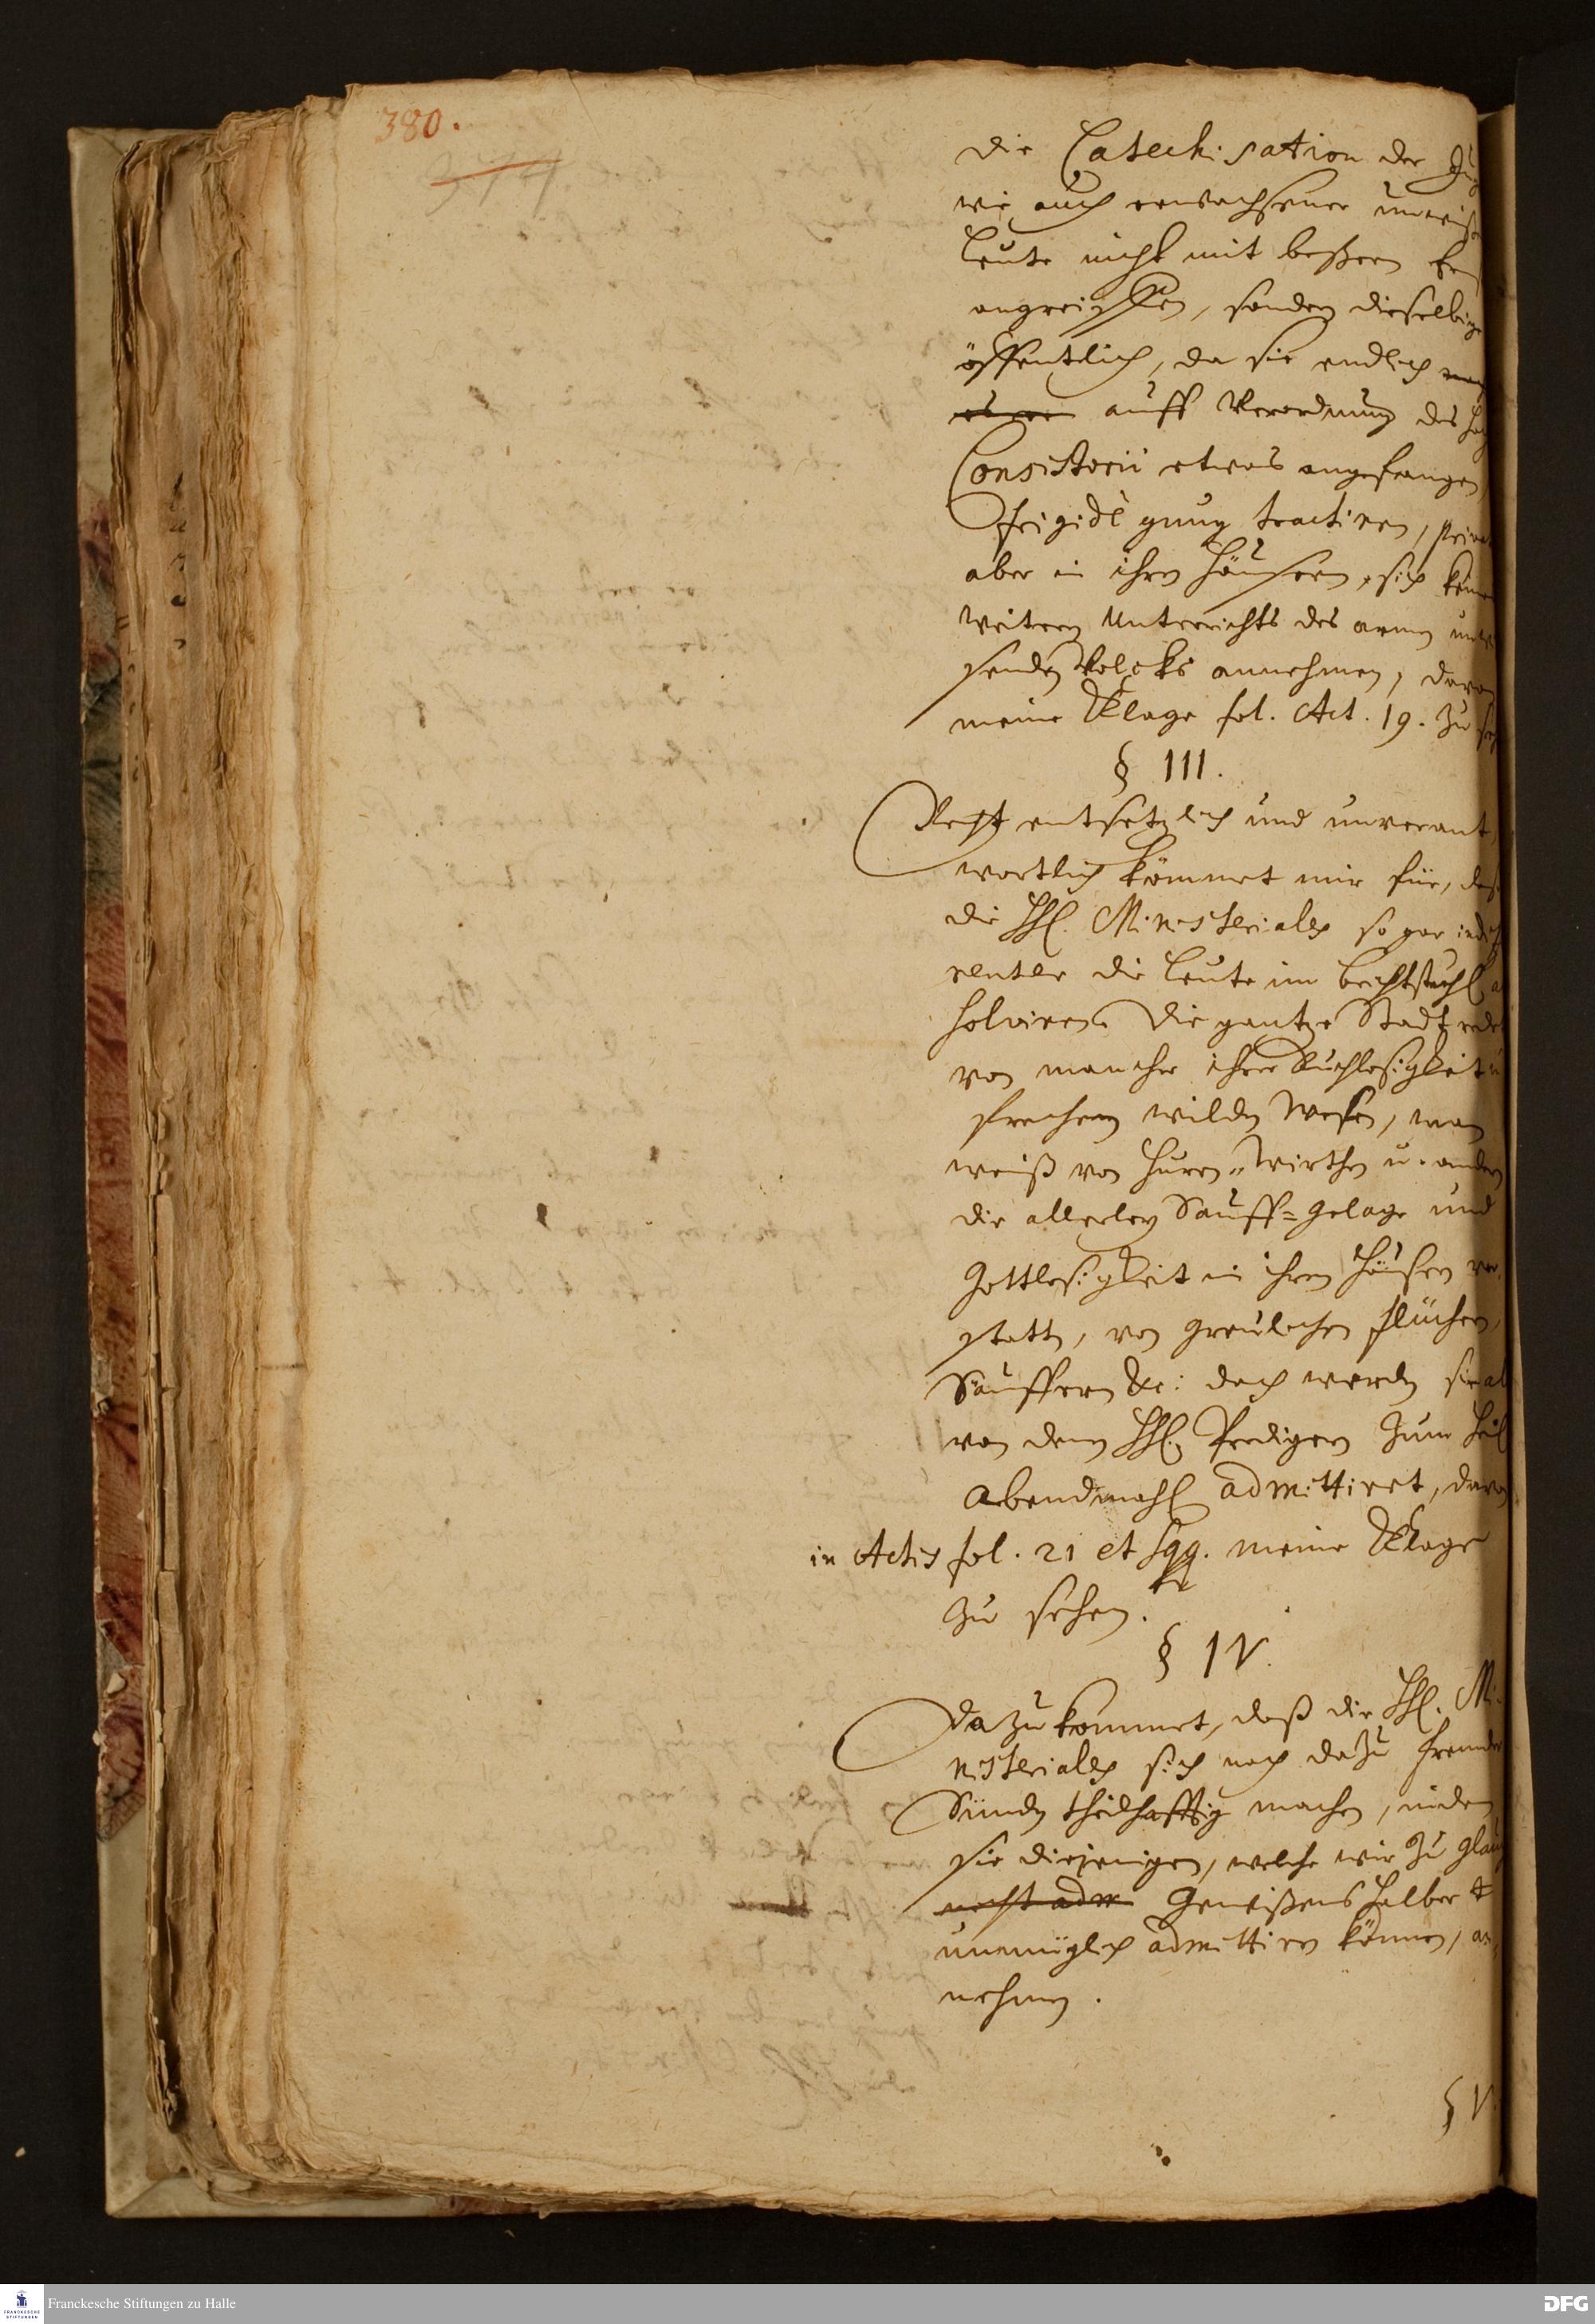 380.
die Catechisation der Jug
wie auch erwachsener unwiß
Leute nicht mit beßern
angreiffen, sondern dieselbige
öffentlich, da sie endlich
auff Verordnung des
Consistorii etwas angefangen
frigidè genug tractiren, priva
aber in ihren Häusern, sich keine
weitern Unterrichts des armen unwi
senden Volcks annehmen, davon
meine Klage fol. Act. 19. zu seh
§ III.
Recht entsetzlich und unverant
wortlich kömmet mir für, daß
die HH. Ministeriales so gar indiff
renter die Leute im Beichtstuhl a
solviren. Die gantze Stadt redet
von mancher ihrer Ruchlosigkeit u
frechem wilden Wesen, man
weiß von Huren-Wirthen u. andern
die allerley Sauff=Gelage und
Gottlosigkeit in ihren Häusern ver
statten, von greulichen Flüchern,
Säuffern &c: doch werden sie al
von denen HH. Predigern zum Heil
Abendmahl admittiret, davon
in Actis fol. 21 et sqq. meine Klage
zu sehen.
§ IV.
Dazu kommet, daß die HH. Mi-
nisteriales sich noch dazu frembder
Sünden theilhafftig machen, indem
sie diejenigen, welche wir zu Glau
nicht adm Gewißens halber
unmüglich admittiren können, an
nehmen.
§ V.
Franckesche Stiftungen zu Halle
DFG